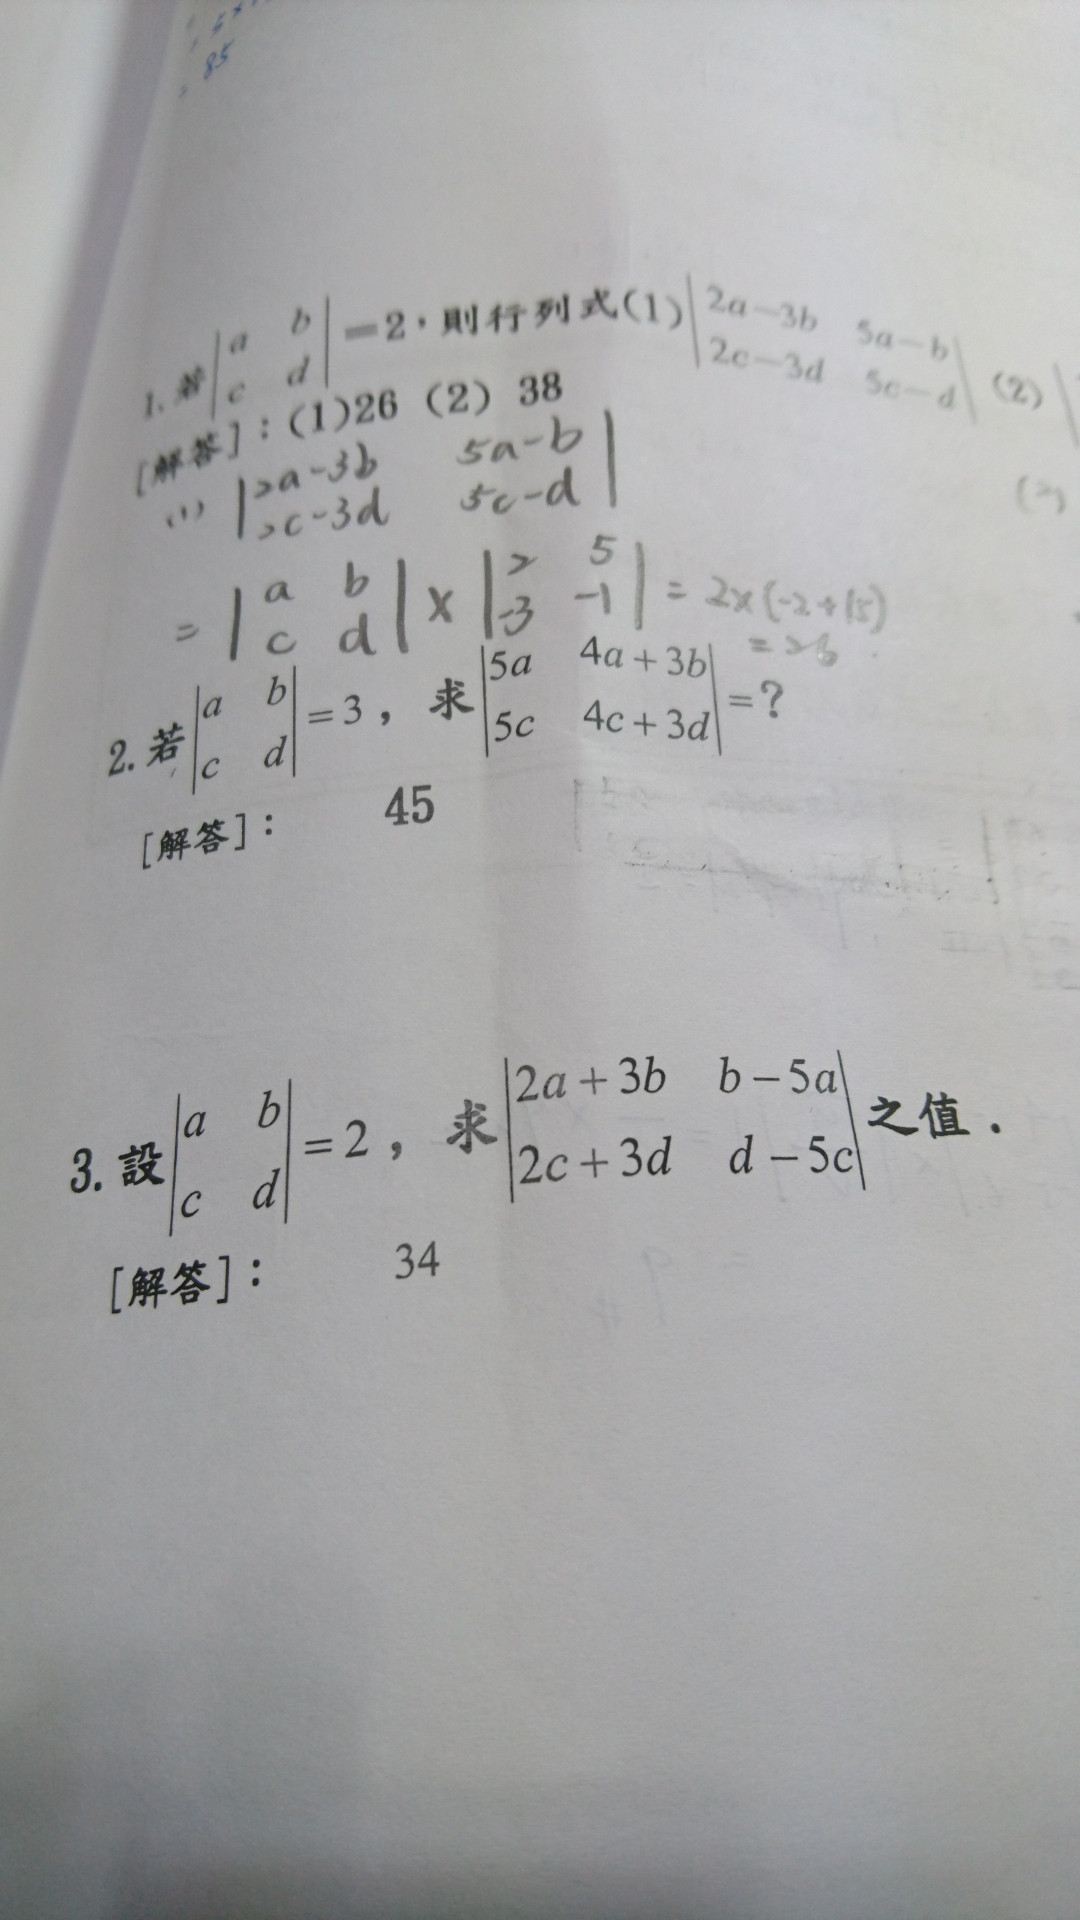 85
1. 若 |a b; c d| = 2，則行列式(1) |2a-3b 5a-b; 2c-3d 5c-d| (2)
[解答]：(1)26 (2) 38
(1) |2a-3b 5a-b; 2c-3d 5c-d|
= |a b; c d| × |2 5; -3 -1| = 2×(-2+15)
= 26
2. 若 |a b; c d| = 3，求 |5a 4a+3b; 5c 4c+3d| = ?
[解答]： 45
3. 設 |a b; c d| = 2，求 |2a+3b b-5a; 2c+3d d-5c| 之值．
[解答]： 34